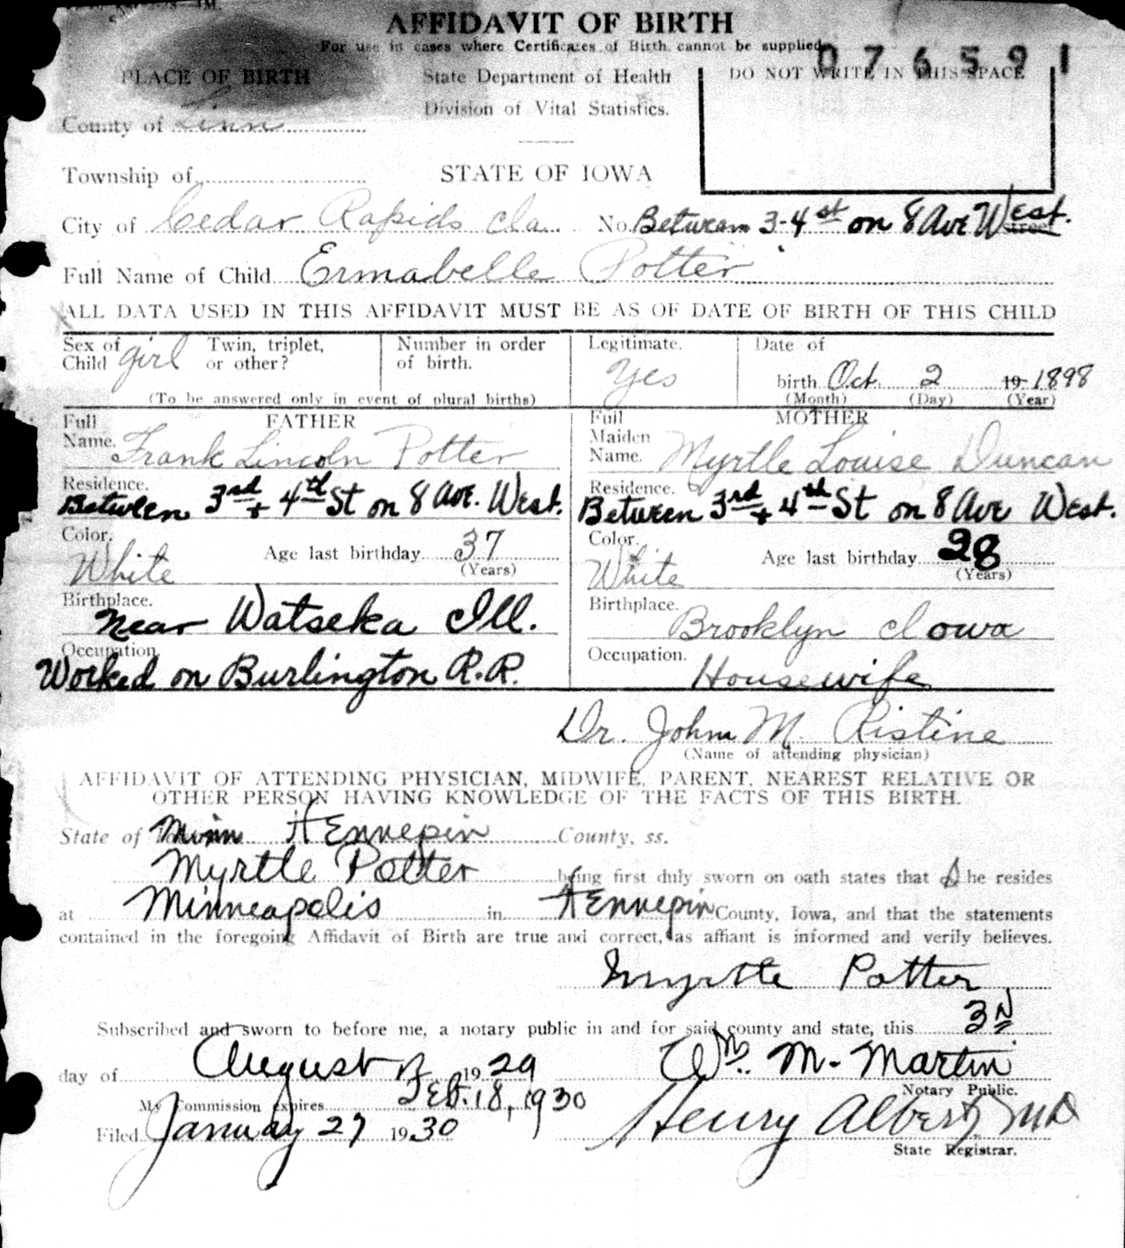 AFFIDAVIT OF BIRTH
For use in cases where Certificates of Birth cannot be supplied
076591
PLACE OF BIRTH
State Department of Health
DO NOT WRITE IN THIS SPACE
Division of Vital Statistics.
County of Linn
Township of
STATE OF IOWA
City of Cedar Rapids Ia. No. Between 3-4 st on 8 Ave West. Street
Full Name of Child Ermabelle Potter
ALL DATA USED IN THIS AFFIDAVIT MUST BE AS OF DATE OF BIRTH OF THIS CHILD
Sex of Child girl
Twin, triplet, or other?
Number in order of birth.
(To be answered only in event of plural births)
Legitimate. Yes
Date of birth Oct. 2 19 1898
(Month) (Day) (Year)
FATHER
Full Name. Frank Lincoln Potter
Residence.
Between 3rd + 4th St on 8 Ave. West.
Color. White
Age last birthday 37
(Years)
Birthplace.
Near Watseka Ill.
Occupation.
Worked on Burlington R.R.
MOTHER
Full Maiden Name. Myrtle Louise Duncan
Residence.
Between 3rd + 4th St on 8 Ave West.
Color. White
Age last birthday 28
(Years)
Birthplace.
Brooklyn Iowa
Occupation.
Housewife
Dr. John M. Ristine
(Name of attending physician)
AFFIDAVIT OF ATTENDING PHYSICIAN, MIDWIFE, PARENT, NEAREST RELATIVE OR
OTHER PERSON HAVING KNOWLEDGE OF THE FACTS OF THIS BIRTH.
State of Minn Hennepin County, ss.
Myrtle Potter being first duly sworn on oath states that She resides
at Minneapolis in Hennepin County, Iowa, and that the statements
contained in the foregoing Affidavit of Birth are true and correct, as affiant is informed and verily believes.
Myrtle Potter
Subscribed and sworn to before me, a notary public in and for said county and state, this 3rd
day of August 1929
Wm. M. Martin
Notary Public.
My Commission expires Feb. 18, 1930
Filed January 27 1930
Henry Albert, MD
State Registrar.